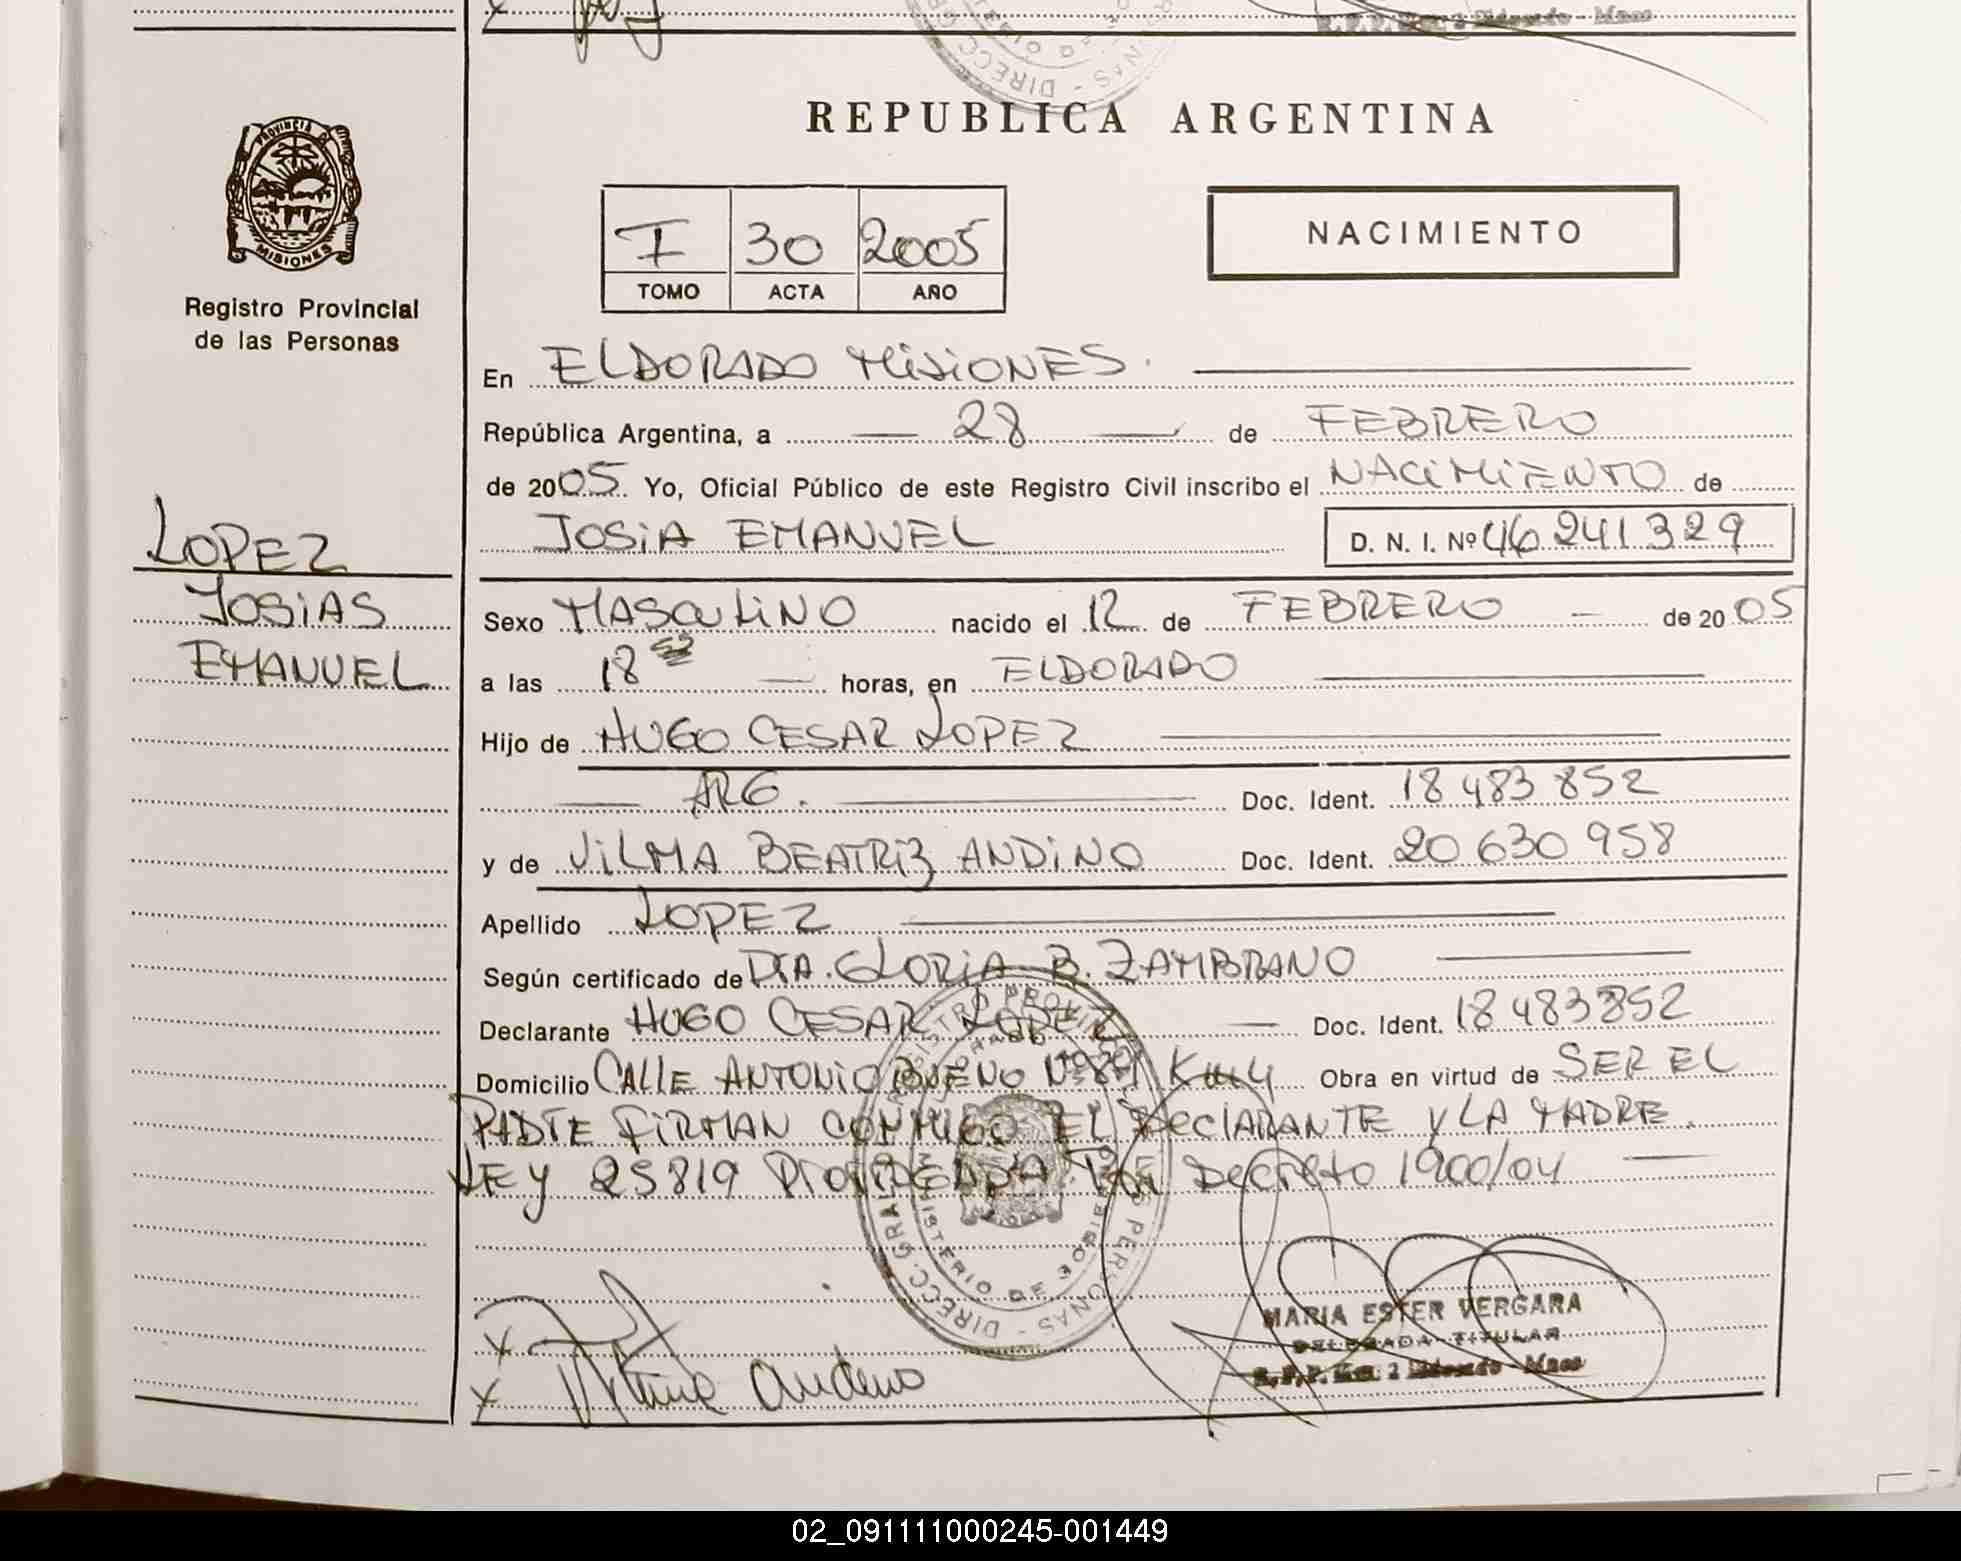 REPUBLICA ARGENTINA
PROVINCIA DE MISIONES
Registro Provincial
de las Personas
I 30 2005
TOMO ACTA AÑO
NACIMIENTO
En ELDORADO MISIONES.
República Argentina, a 28 de FEBRERO
de 2005 Yo, Oficial Público de este Registro Civil inscribo el NACIMIENTO de
JOSIA EMANUEL D. N. I. Nº 46 241 329
LOPEZ
JOSIAS
EMANUEL
Sexo MASCULINO nacido el 12 de FEBRERO de 2005
a las 18 horas, en ELDORADO
Hijo de HUGO CESAR LOPEZ
ARG. Doc. Ident. 18 483 852
y de VILMA BEATRIZ ANDINO Doc. Ident. 20 630 958
Apellido LOPEZ
Según certificado de DRA. GLORIA B. ZAMBRANO
Declarante HUGO CESAR LOPEZ Doc. Ident. 18 483852
Domicilio CALLE ANTONIO BUENO Obra en virtud de SER EL
PADRE FIRMAN CONMIGO EL DECLARANTE Y LA MADRE.
LEY 25819 POR DECRETO 1900/04
MARIA ESTER VERGARA
DELEGADA TITULAR
R.P.P. Km. 2 Eldorado - Mnes
Vilma Andino
02_091111000245-001449